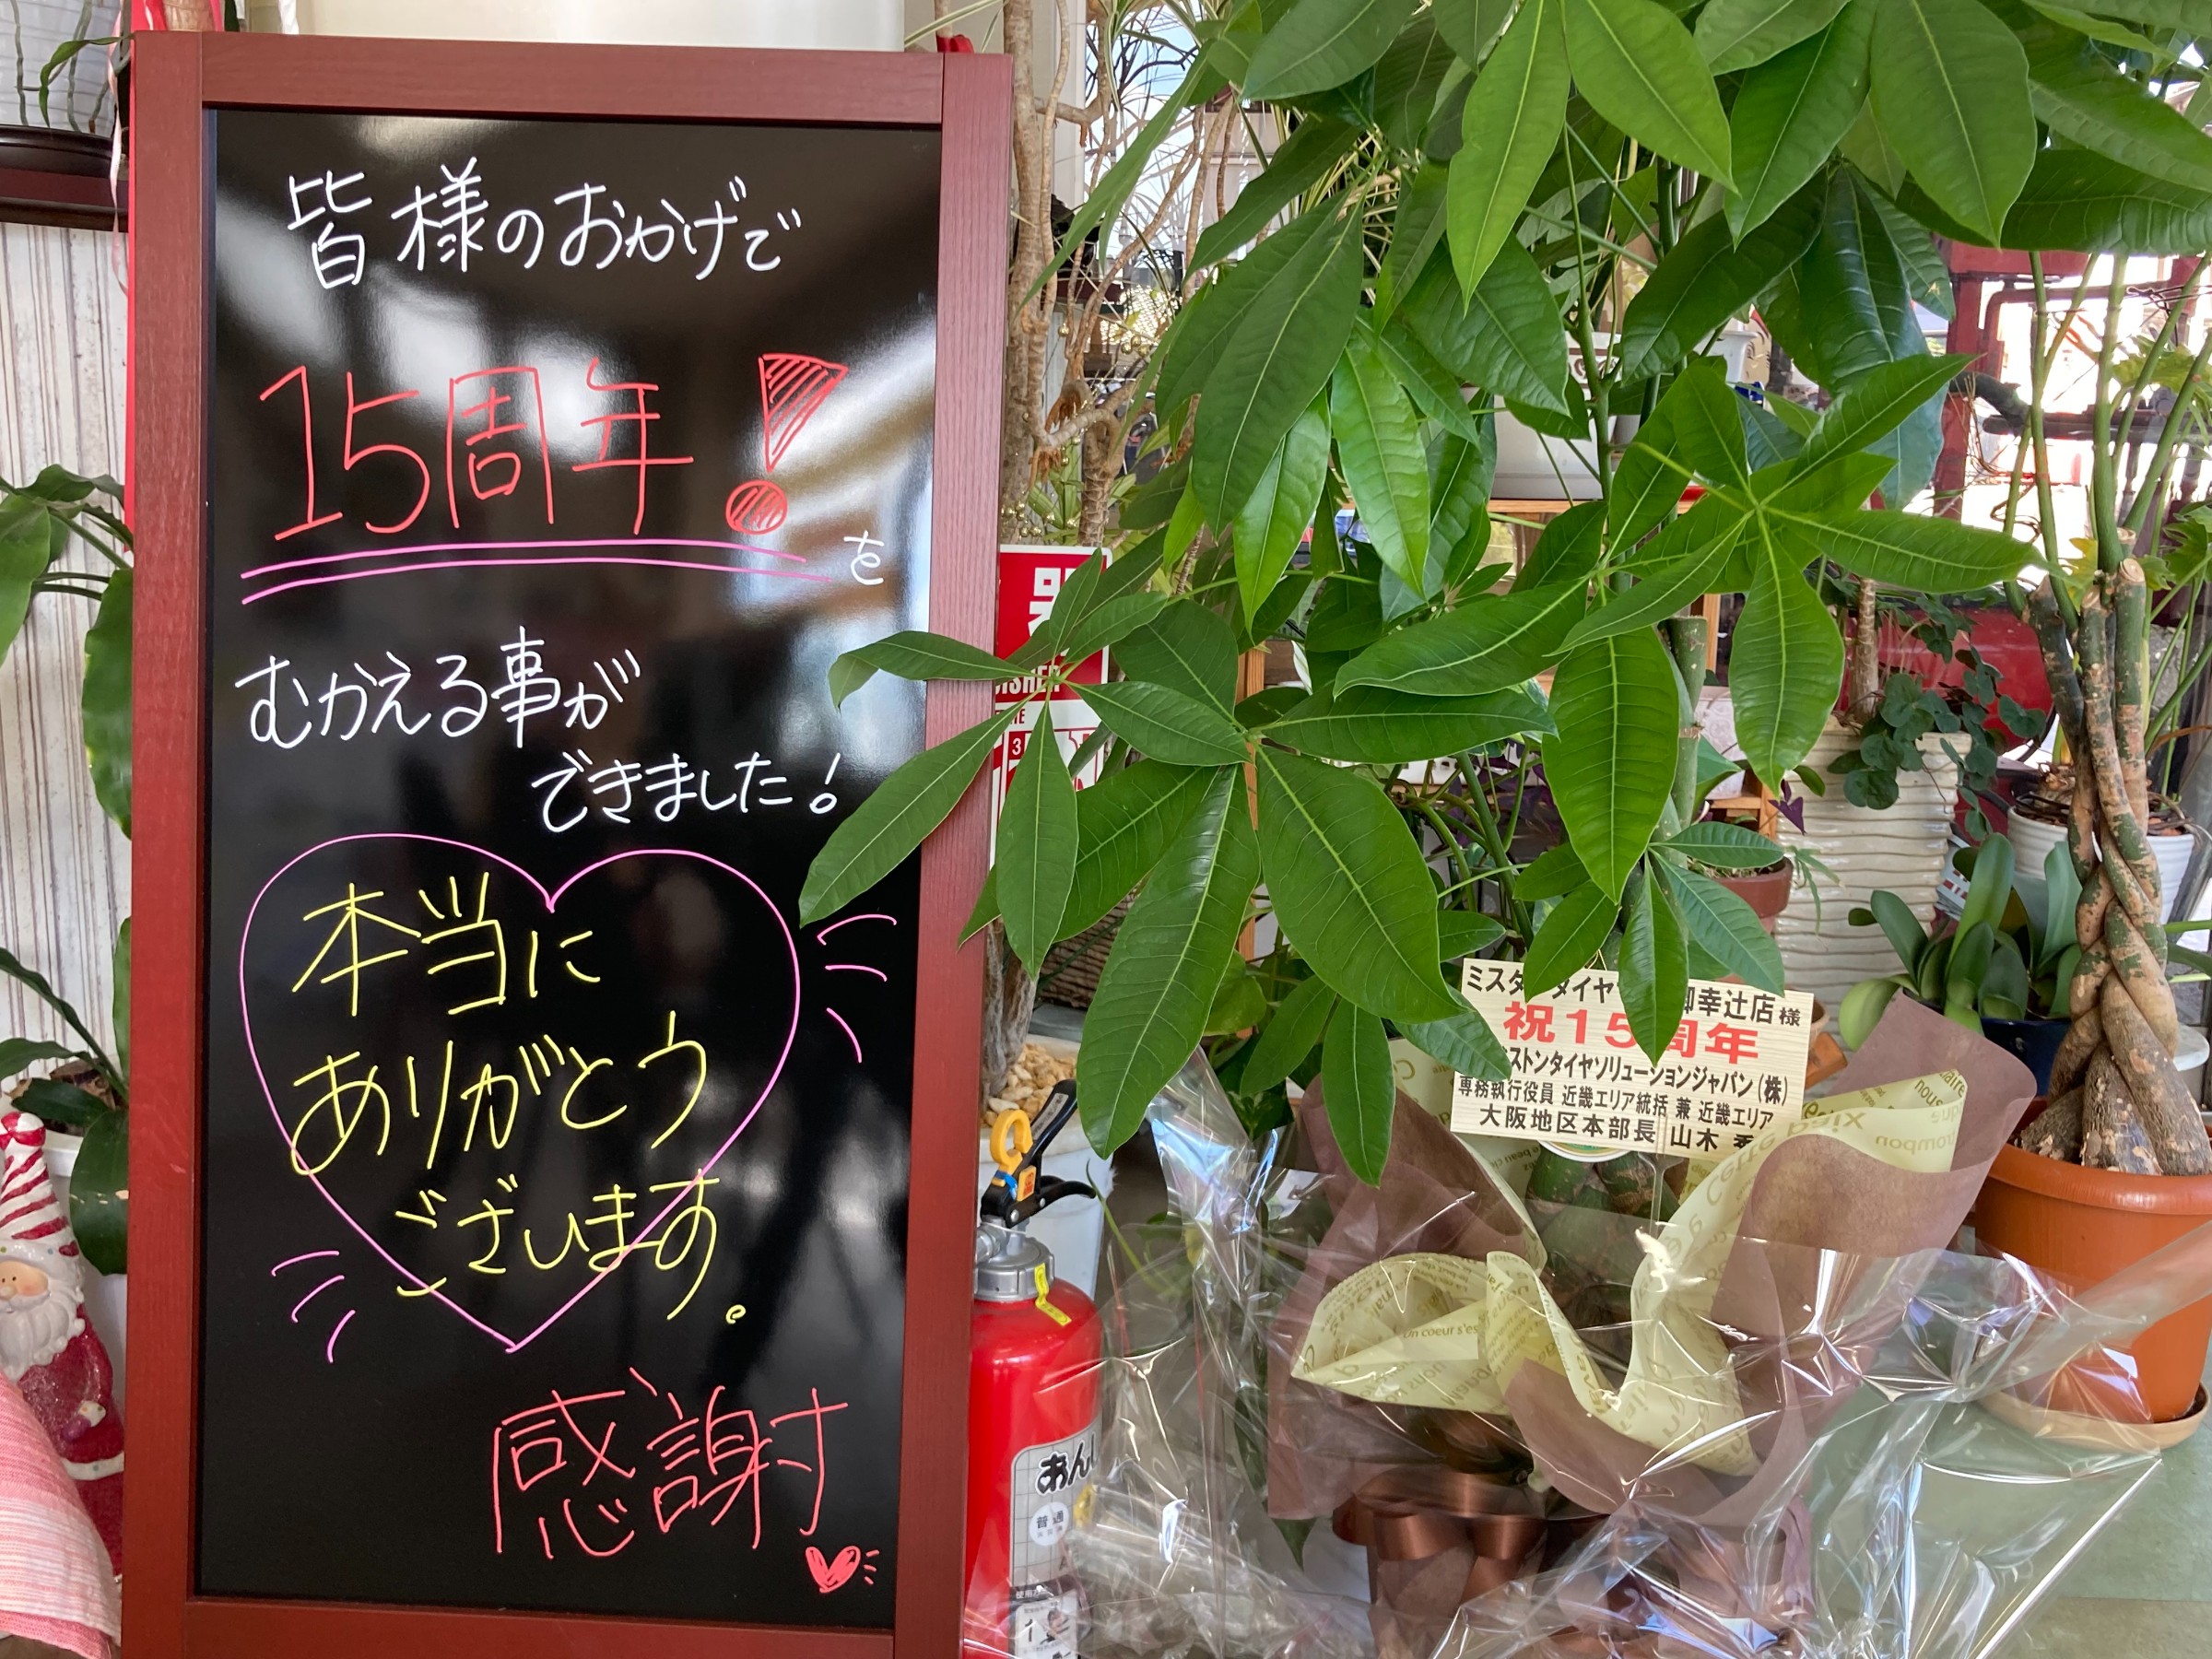 皆様のおかげで
15周年!を
むかえる事が
できました!
本当に
ありがとう
ございます。
感謝
ミスタ タイヤ 御幸辻店様
祝15周年
ストンタイヤソリューションジャパン(株)
専務執行役員 近畿エリア統括 兼 近畿エリア
大阪地区本部長 山木
器
ISHER
3
あんし
普通
Un coeur s'es